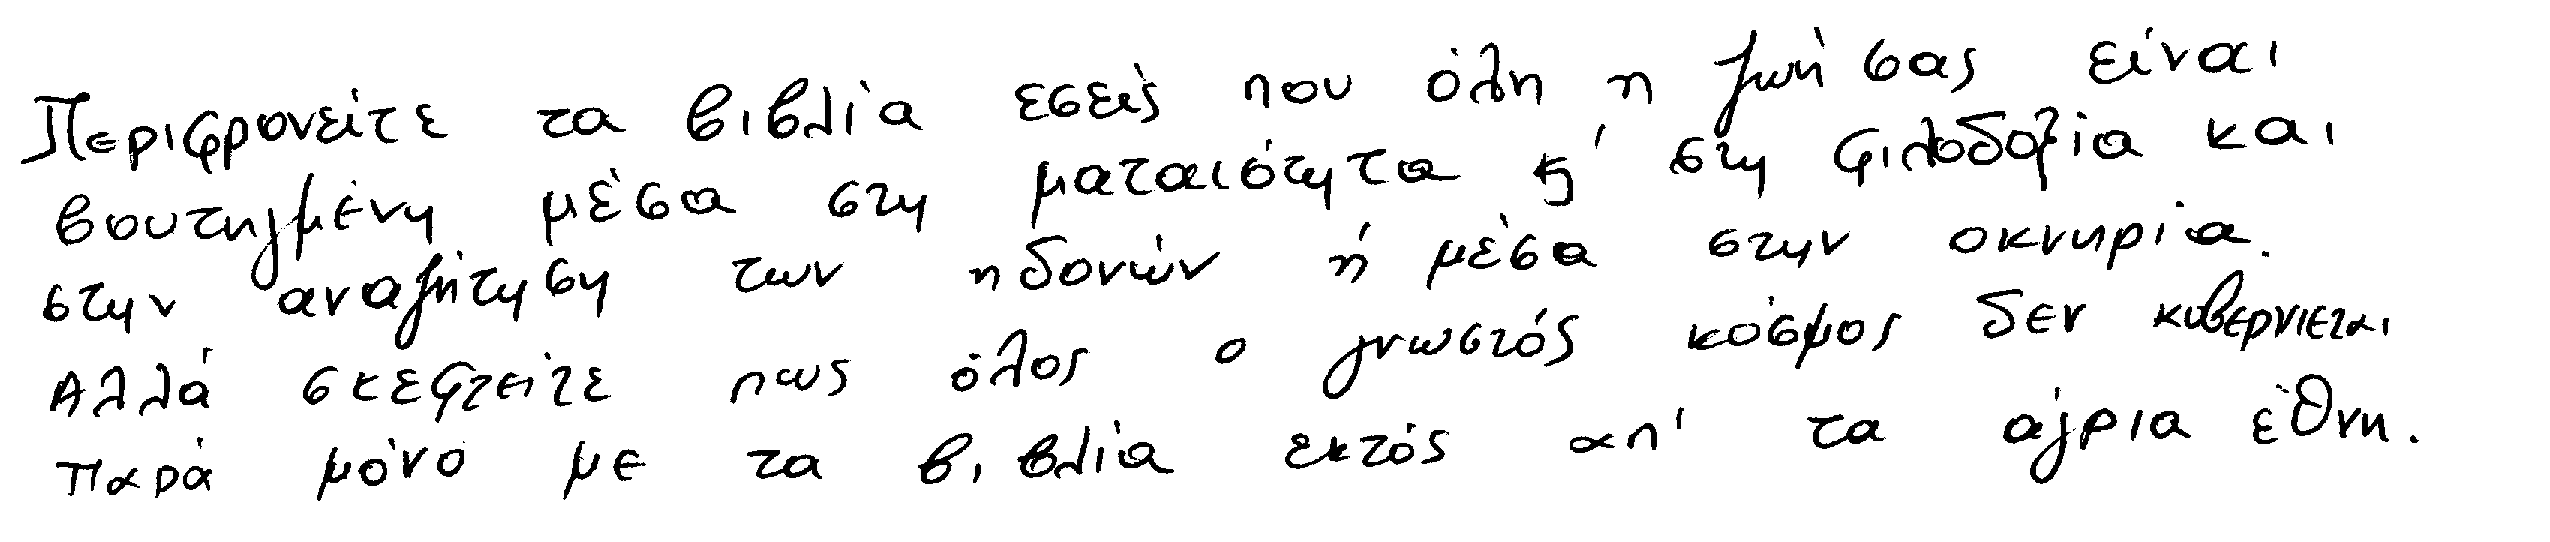 Περιφρονείτε τα βιβλία εσείς που όλη η ζωή σας είναι
βουτηγμένη μέσα στη ματαιότητα κ' στη φιλοδοξία και
στην αναζήτηση των ηδονών ή μέσα στην οκνηρία.
Αλλά σκεφτείτε πως όλος ο γνωστός κόσμος δεν κυβερνιεται
παρά μόνο με τα βιβλία εκτός απ' τα άγρια έθνη.